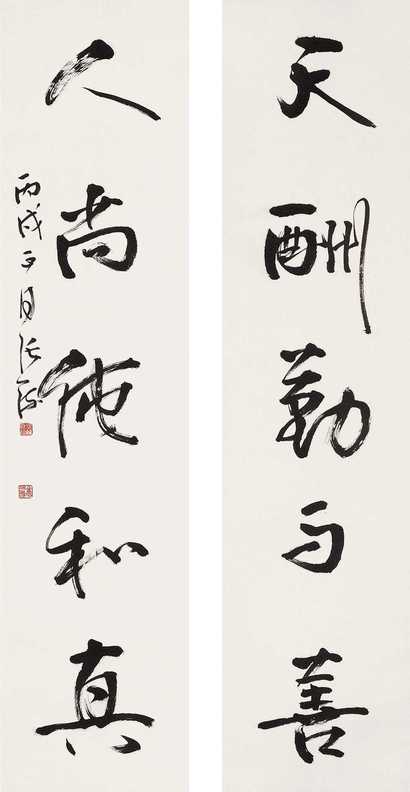 天酬勤与善
人尚德和真
丙戌正月张